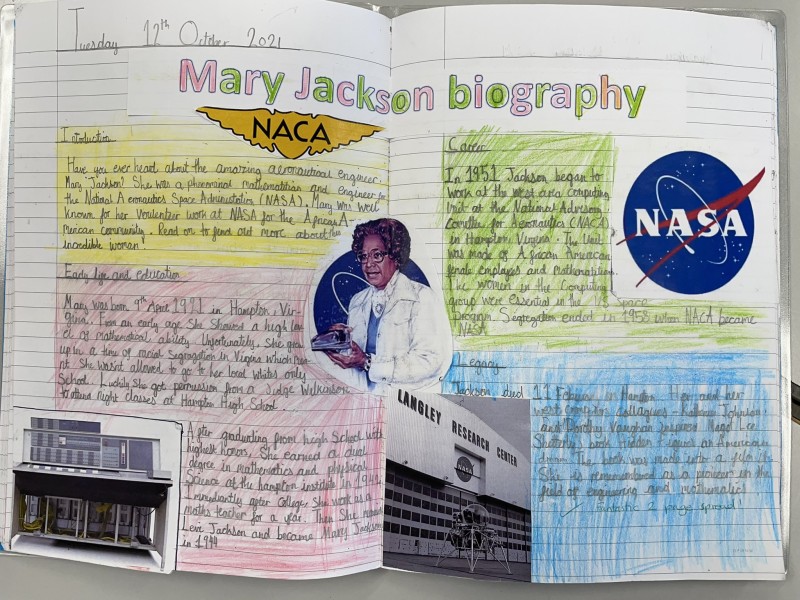 Tuesday 12th October 2021
Mary Jackson biography
NACA
Introduction
Have you ever heard about the amazing aeronautical engineer,
Mary Jackson? She was a phenominal mathematitian and engineer for
the National Aeronautics Space Administration (NASA). Mary was well
known for her voulenteer work at NASA for the African A-
merican community. Read on to find out more about this
incredible woman!
Early life and education
Mary was born 9th April 1921 in Hampton, Vir-
ginia. From an early age She showed a high
of mathematical ability. Unfortunately, She grew
up in a time of racial Segregation in Virgina which
She wasn't allowed to go to her local whites only
School. Luckily She got permission from a Judge Wilkinson
to attend night classes at Hampton High School.
After graduating from high School with
highest honors, She earned a dual
degree in mathematics and physical
Science at the hampton institute in
Immediantly after College, She work as a
maths teacher for a year. Then She married
Levi Jackson and became Mary Jackson
in 1944
Career
In 1951 Jackson began to
work at the west area Computing
Unit at the National Advisory
Comittee for Aeronautics (NACA)
in Hampton, Virgina. The Unit
was made of African American
female employes and mathematitian.
The women in the Computing
group were essential in the Space
Program. Segregation ended in 1958 when NACA became
NASA.
NASA
Legacy
Jackson died 11 February in Hamton. Her and her
west computer collagues - Katherine Johnson
and Dorothy Vaughan inspired Margo Lee
Shatterly's book Hidden Figures an American
The book was made into a film
She is remembered as a pioneer in the
field of engineering and mathematics!
Fantastic 2 page spread!
LANGLEY RESEARCH CENTER
NASA